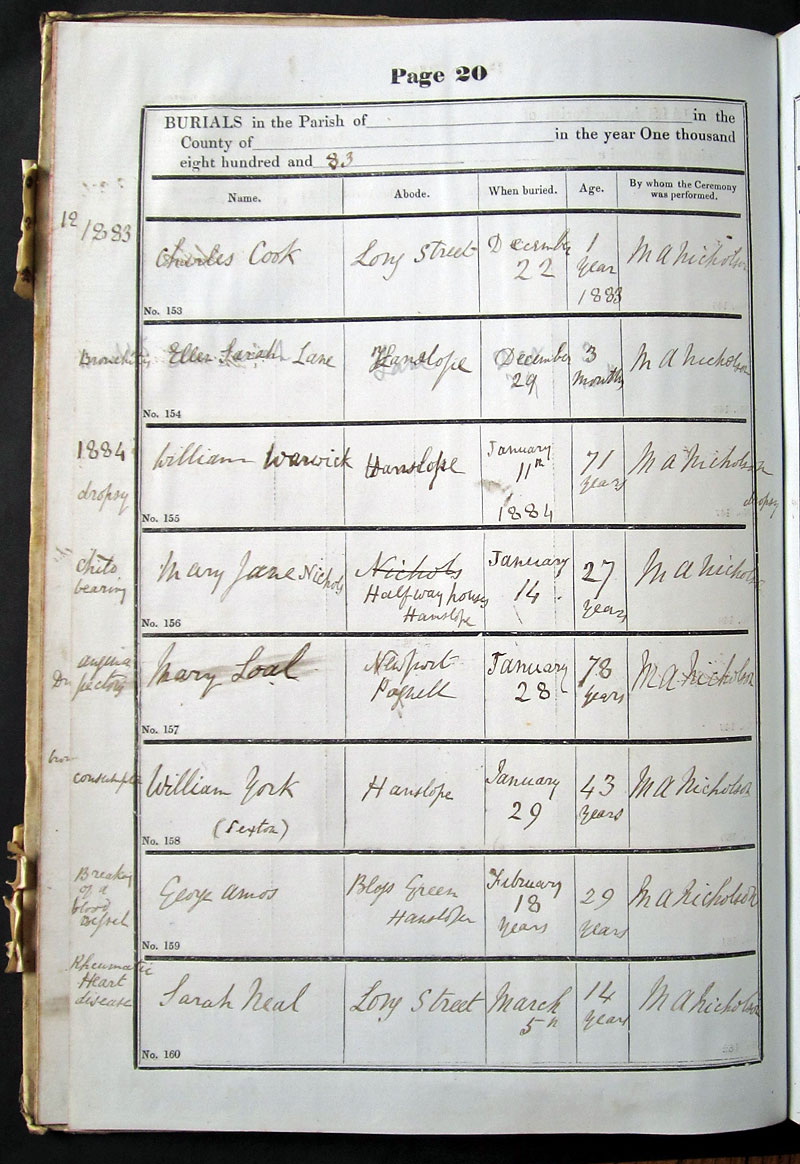 Page 20
BURIALS in the Parish of in the
County of in the year One thousand
eight hundred and 83
Name. Abode. When buried. Age. By whom the Ceremony
was performed.
12/1883
Charles Cook Long Street December
22 1
Year
1883 M A Nicholson
No. 153
Bronchitis Ellen Sarah Lane Hanslope December
29 3
Months M A Nicholson
No. 154
1884
dropsy
William Warwick Hanslope January
11th
1884 71
years M A Nicholson
dropsy
No. 155
child
bearing
Mary Jane Nichols Nichols
Halfway house
Hanslope January
14 27
years M A Nicholson
No. 156
angina
pectoris
Mary Loal Newport
Pagnell January
28 78
years M A Nicholson
No. 157
consumption
William York
(Sexton) Hanslope January
29 43
years M A Nicholson
No. 158
Breaking
of a
blood
vessel
George Amos Green
Hanslope February
18
years 29
years M A Nicholson
No. 159
Rheumatic
Heart
disease
Sarah Neal Long Street March
5th 14
years M A Nicholson
No. 160